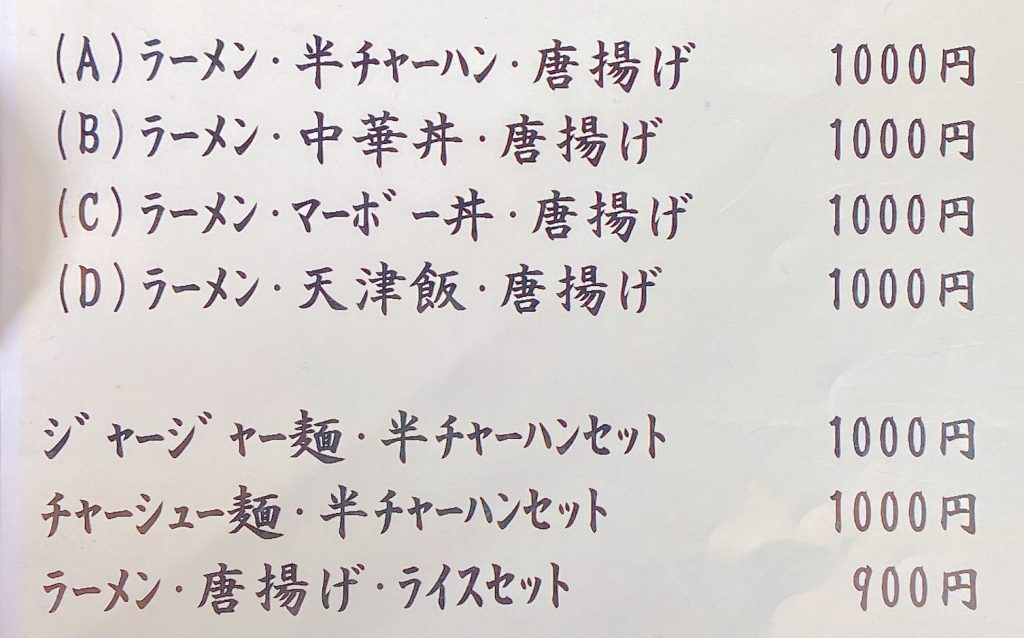 (A)ラーメン・半チャーハン・唐揚げ 1000円
(B)ラーメン・中華丼・唐揚げ 1000円
(C)ラーメン・マーボー丼・唐揚げ 1000円
(D)ラーメン・天津飯・唐揚げ 1000円
ジャージャー麺・半チャーハンセット 1000円
チャーシュー麺・半チャーハンセット 1000円
ラーメン・唐揚げ・ライスセット 900円